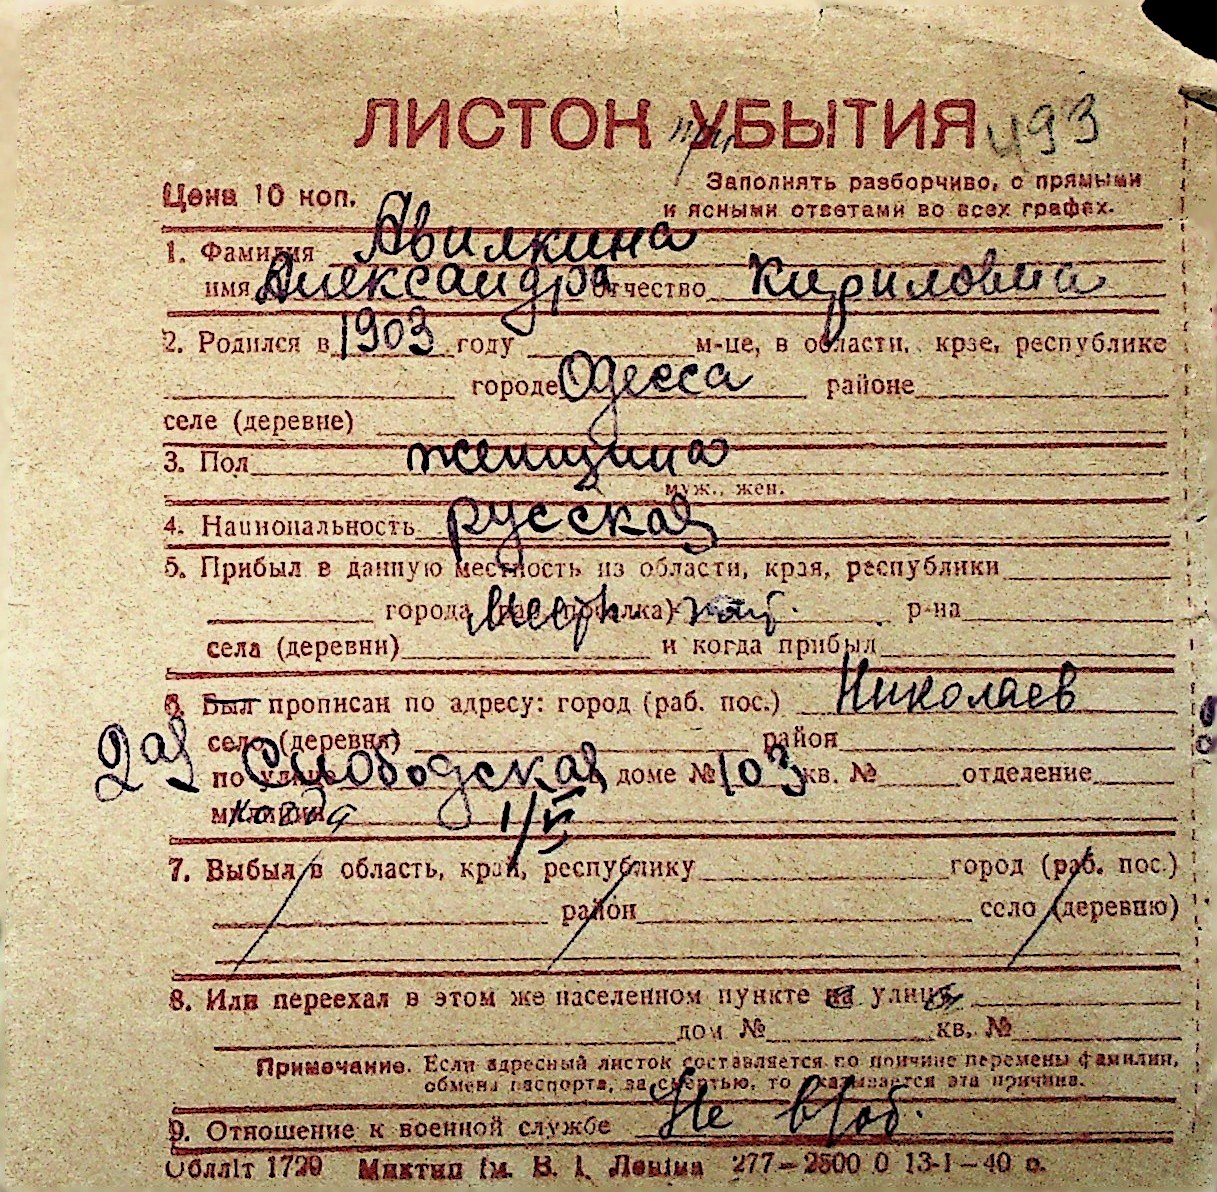 ЛИСТОК при УБЫТИЯ 493
Цена 10 коп.
Заполнять разборчиво, с прямыми
и ясными ответами во всех графах.
1. Фамилия Авилкина
имя Александра отчество Кириловна
2. Родился в 1903 году м-це, в области, крае, республике
городе Одесса районе
селе (деревне)
3. Пол женщина
муж., жен.
4. Национальность русская
5. Прибыл в данную местность из области, края, республики
города (раб. поселка) р-на
села (деревни) и когда прибыл
6. Был прописан по адресу: город (раб. пос.) Николаев
село (деревня) район
2ая Слободская
по улице доме № 103 кв. № отделение
милиции когда 1/VI
7. Выбыл в область, край, республику город (раб. пос.)
район село (деревню)
8. Или переехал в этом же населенном пункте на улицу
дом № кв. №
Примечание. Если адресный листок составляется по причине перемены фамилии,
обмена паспорта, за смертью, то указывается эта причина.
9. Отношение к военной службе Не в/об.
Обллiт 1720 Миктип iм. В. I. Ленiна 277—2500 0 13-I-40 р.